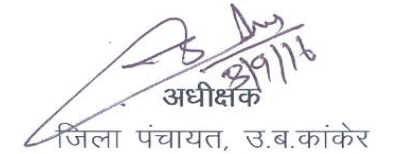 8/9/16
अधीक्षक
जिला पंचायत, उ.ब.कांकेर